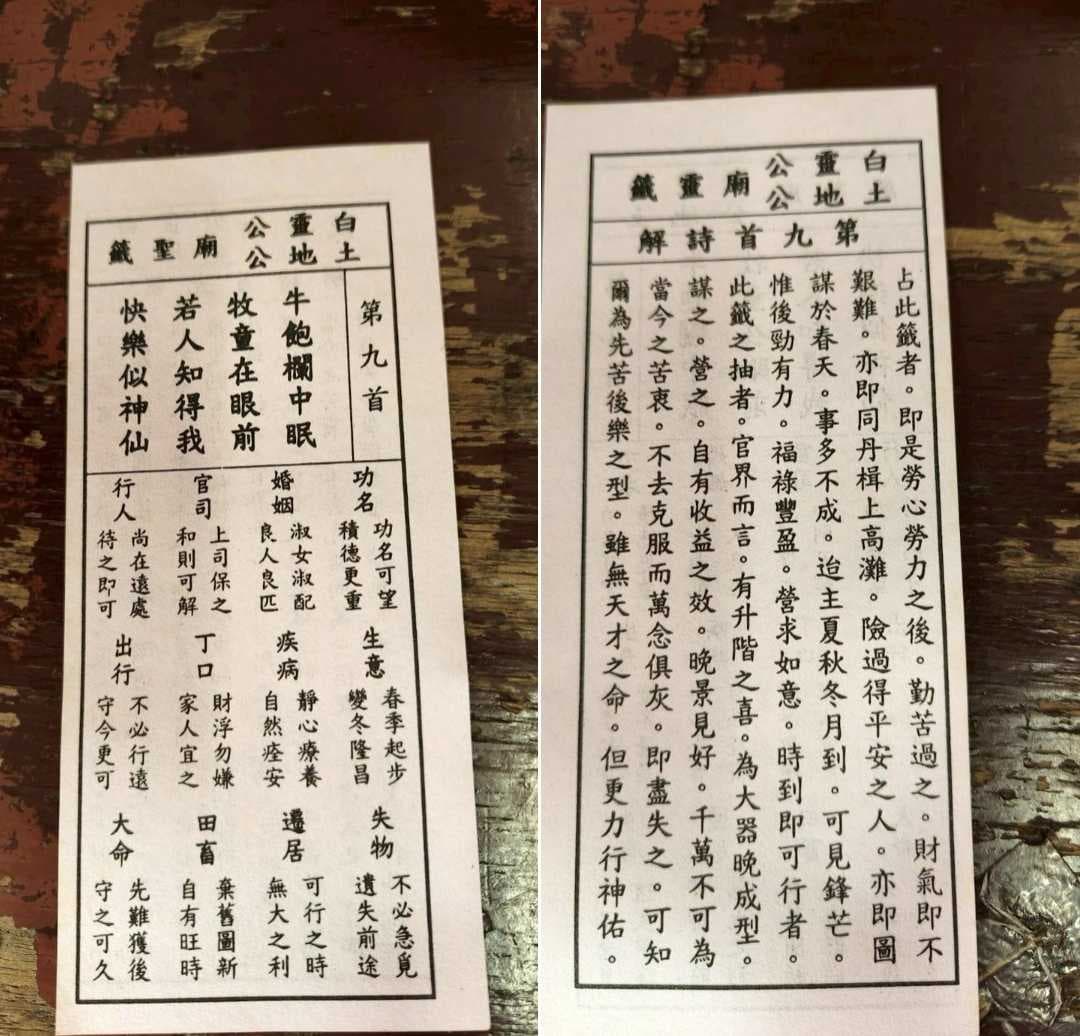 白靈公
土地公
廟聖籤
第九首
牛飽欄中眠
牧童在眼前
若人知得我
快樂似神仙
功名
功名可望
積德更重
婚姻
淑女淑配
良人良匹
官司
上司保之
和則可解
行人
尚在遠處
待之即可
生意
春季起步
變冬隆昌
疾病
靜心療養
自然痊安
丁口
財浮勿嫌
家人宜之
出行
不必行遠
守今更可
失物
不必急覓
遺失前途
遷居
可行之時
無大之利
田畜
棄舊圖新
自有旺時
大命
先難獲後
守之可久
白靈公
土地公
廟靈籤
第九首詩解
占此籤者。即是勞心勞力之後。勤苦過之。財氣即不
艱難。亦即同丹楫上高灘。險過得平安之人。亦即圖
謀於春天。事多不成。迨主夏秋冬月到。可見鋒芒。
惟後勁有力。福祿豐盈。營求如意。時到即可行者。
此籤之抽者。官界而言。有升階之喜。為大器晚成型。
謀之。營之。自有收益之效。晚景見好。千萬不可為
當今之苦衷。不去克服而萬念俱灰。即盡失之。可知
爾為先苦後樂之型。雖無天才之命。但更力行神佑。